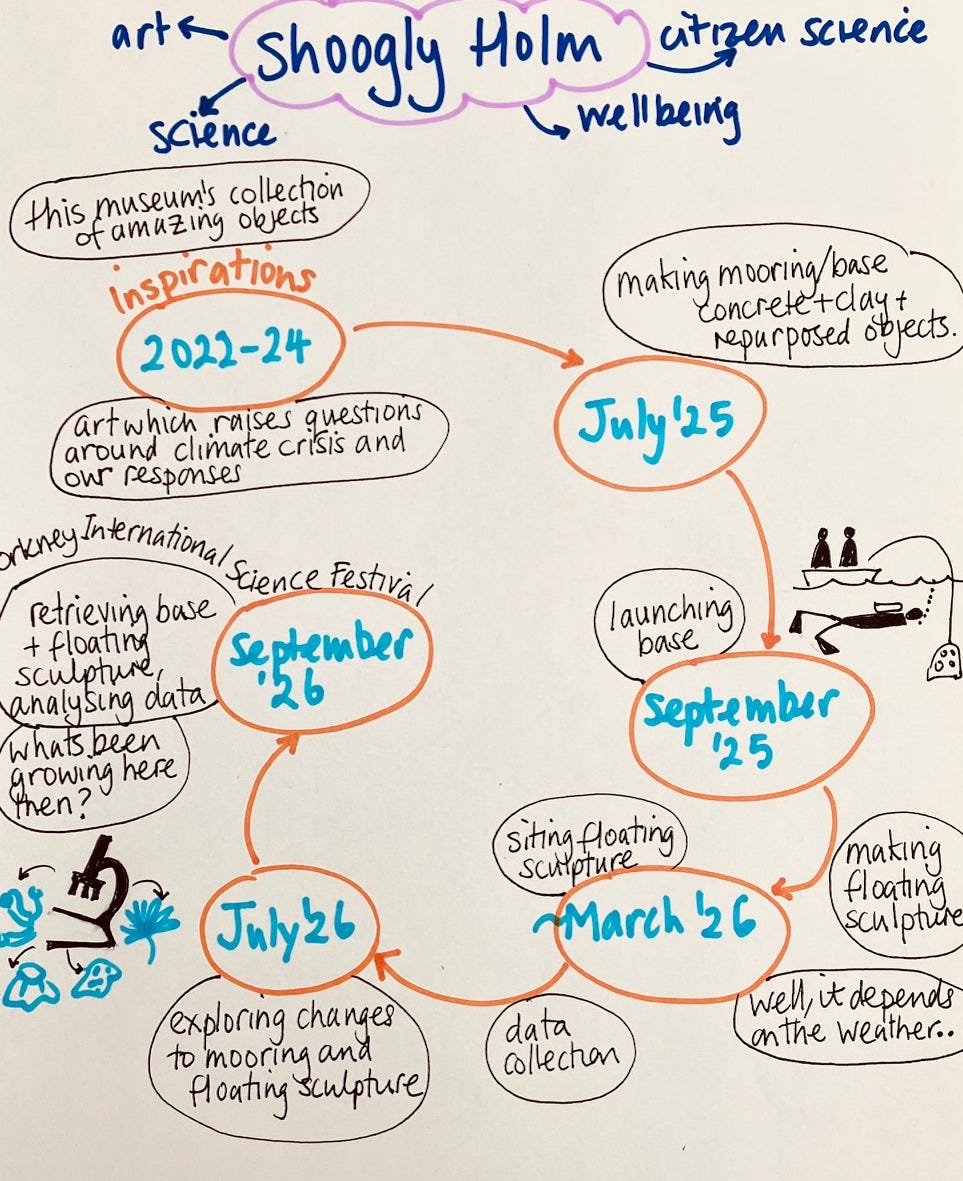 art
Shoogly Holm
citizen science
science
wellbeing
this museum's collection
of amazing objects
inspirations
2022-24
art which raises questions
around climate crisis and
our responses
making mooring/base
concrete + clay +
repurposed objects.
July '25
launching
base
September
'25
making
floating
sculpture
siting floating
sculpture
~March '26
well, it depends
on the weather..
data
collection
July '26
exploring changes
to mooring and
floating sculpture
Orkney International Science Festival
September
'26
retrieving base
+ floating
sculpture,
analysing data
whats been
growing here
then?